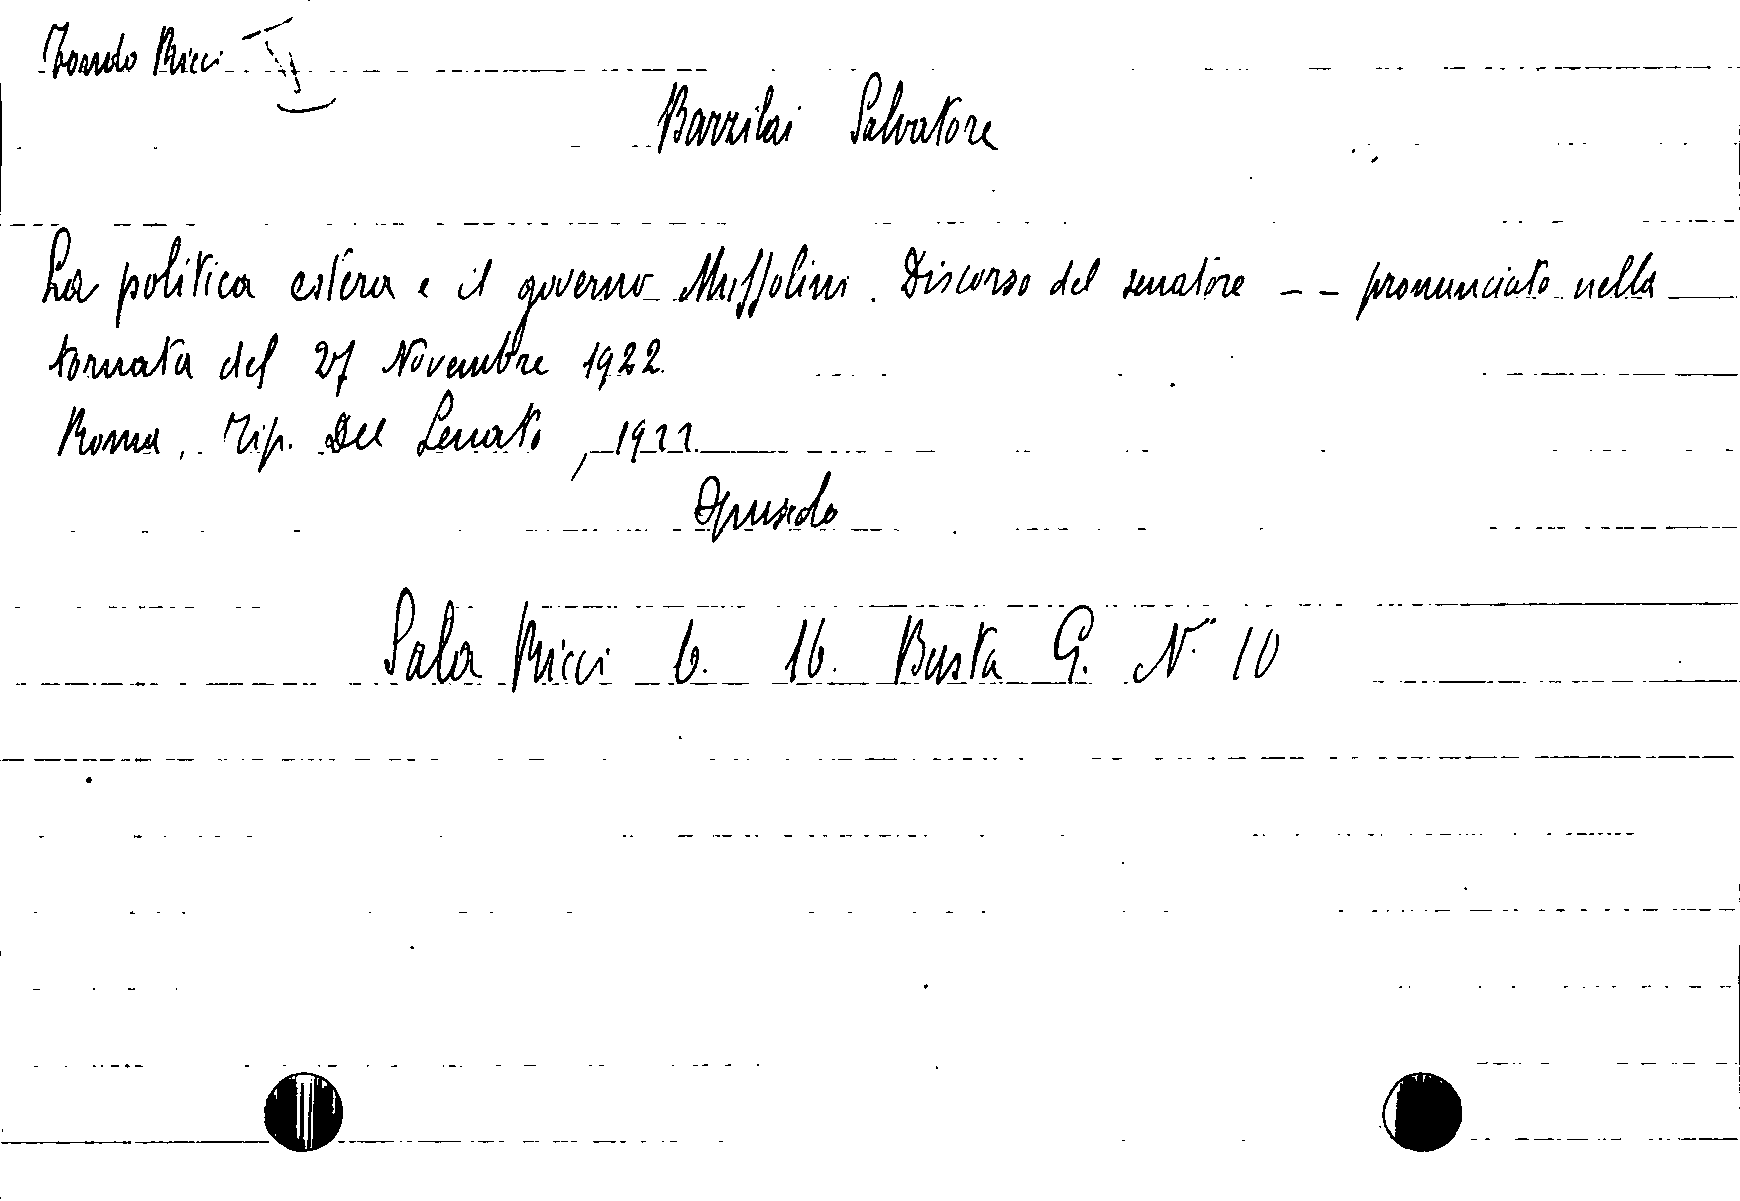 Fondo Ricci
Barzilai Salvatore
La politica estera e il governo Mussolini. Discorso del senatore -- pronunciato nella
tornata del 27 Novembre 1922.
Roma, Tip. Del Senato, 1922.
Opuscolo
Sala Ricci b. 16. Busta G. N. 10